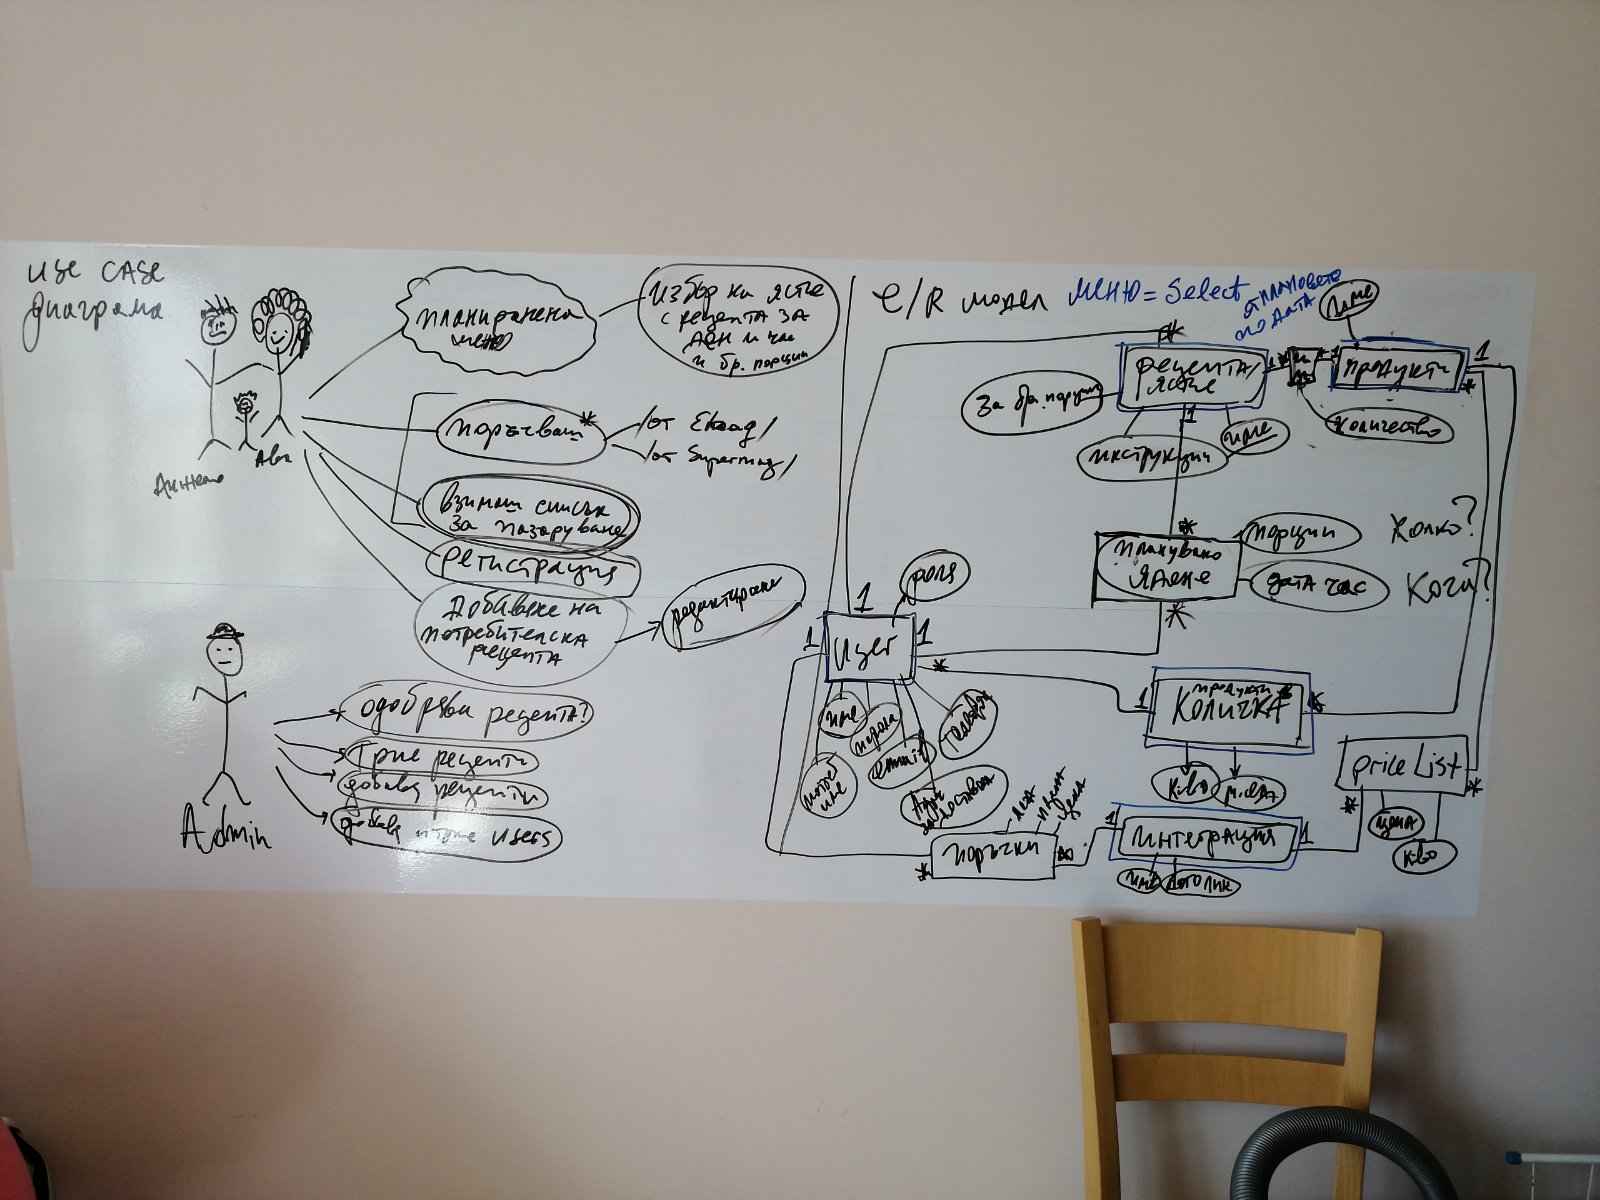 USE CASE
Диаграма
планиране на
меню
Избор на ястие
с рецепта ЗА
ДЕН и час
и бр. порции
поръчват*
/от Ebag/
/от Supermag/
взимат списък
за пазаруване
регистрация
Добавяне на
потребителска
рецепта
редактиране
Admin
одобрява рецепта?
Трие рецепти
добавя рецепти
добавя и трие users
E/R модел
МЕНЮ = Select
от плановете
по дата
име
рецепта/
ястие
*
1
*
1
продукти
1
*
За бр. порции
инструкции
име
количество
1
*
планувано
ядене
*
порции
Колко?
дата час
Кога?
роля
1
1
Юзер
1
*
име
парола
email
телефон
Адрес
за доставка
1
продукти
КОЛИЧКА
*
к-во
price List
*
*
цена
к-во
поръчки
*
*
дата
цена
1
интеграция
1
име
лого
линк